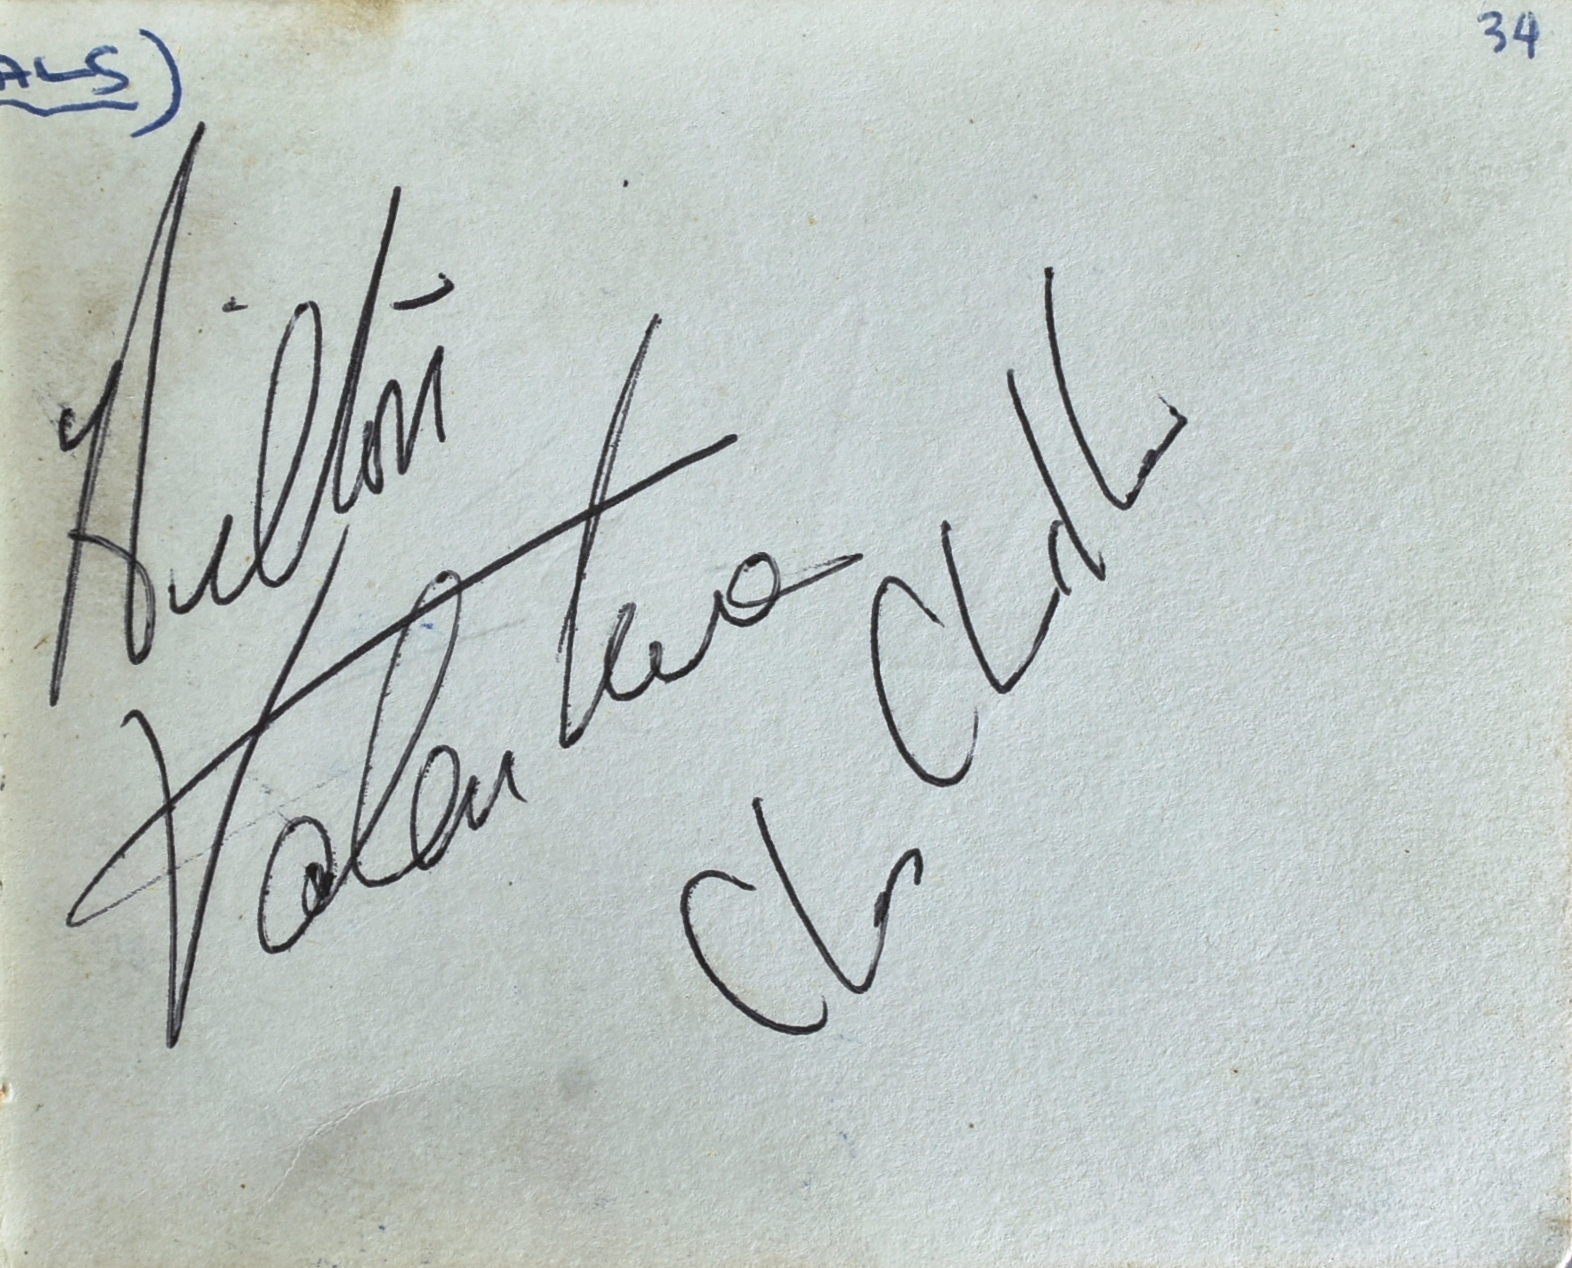 ALS)
34
Hilton
Valentine
Chas Chandler